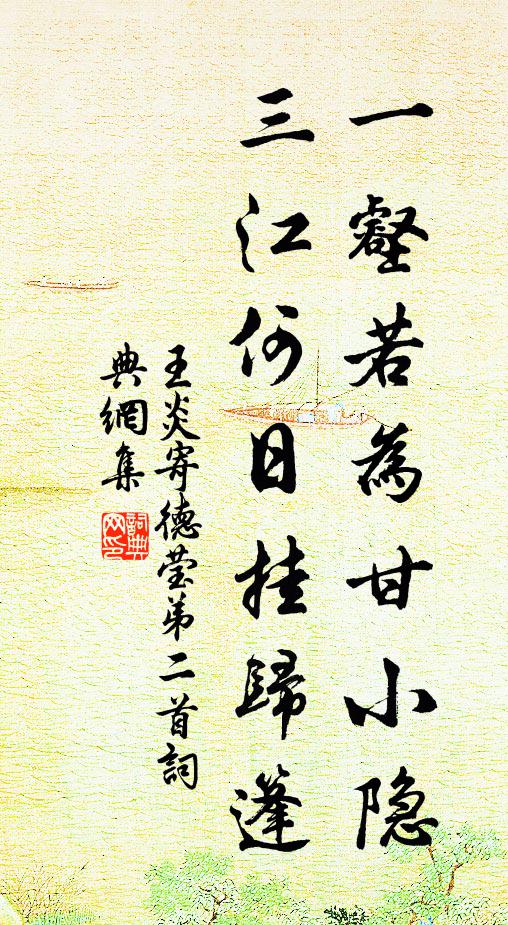 一壑若為甘小隐
三江何日挂歸篷
王炎寄德莹弟二首詞
典網集
詞典
网印